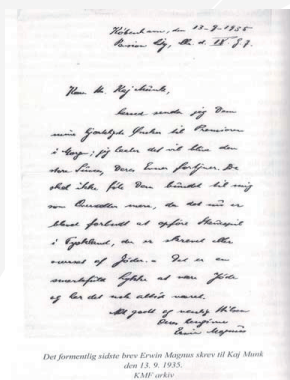 København, den 13-9-1935
Herr Kaj Munk,
herved sender jeg Dem
mine hjerteligste Ønsker til Premieren
i jeg det vil blive den
store Deres fortjener. De
skal ikke føle Dem bundet til mig
mere, da det nu er
blevet forbudt at opføre Skuespil
i Tyskland, der er skrevet eller
oversat af Jøder. - Det er en
smertefuld Lykke at være Jøde
og har det nok altid været.
Alt godt og venlig Hilsen
Deres hengivne
Erwin Magnus
Det formentlig sidste brev Erwin Magnus skrev til Kaj Munk
den 13. 9. 1935.
KMF arkiv